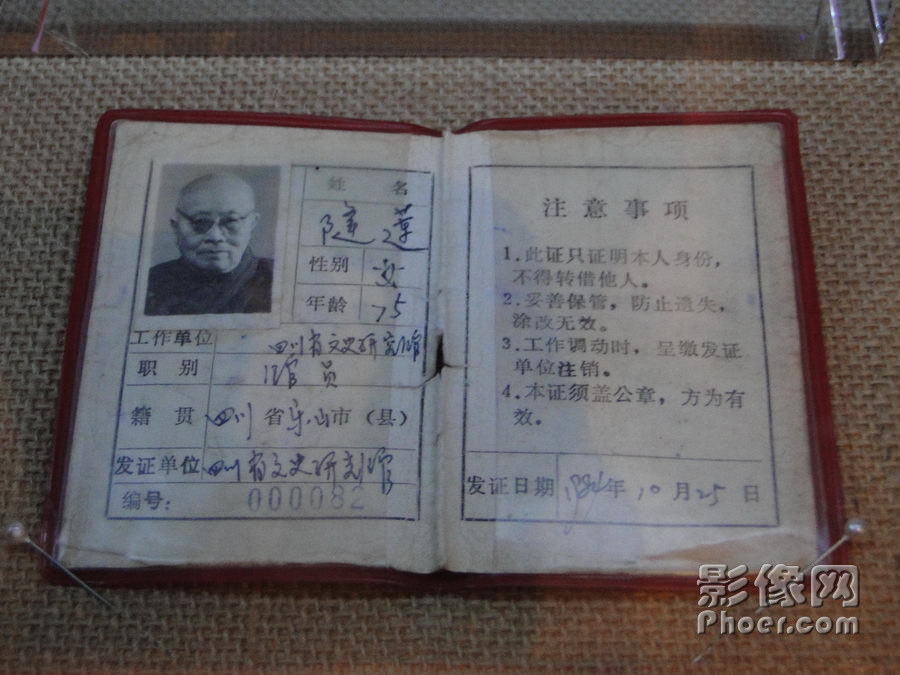 姓 名
隆莲
性别 女
年龄 75
工作单位 四川省文史研究馆
职 别 馆员
籍 贯 四川省乐山市（县）
发证单位 四川省文史研究馆
编号： 000082
注意事项
1.此证只证明本人身份，
不得转借他人。
2.妥善保管，防止遗失，
涂改无效。
3.工作调动时，呈缴发证
单位注销。
4.本证须盖公章，方为有
效。
发证日期 1984年10月25日
影像网
Phoer.com